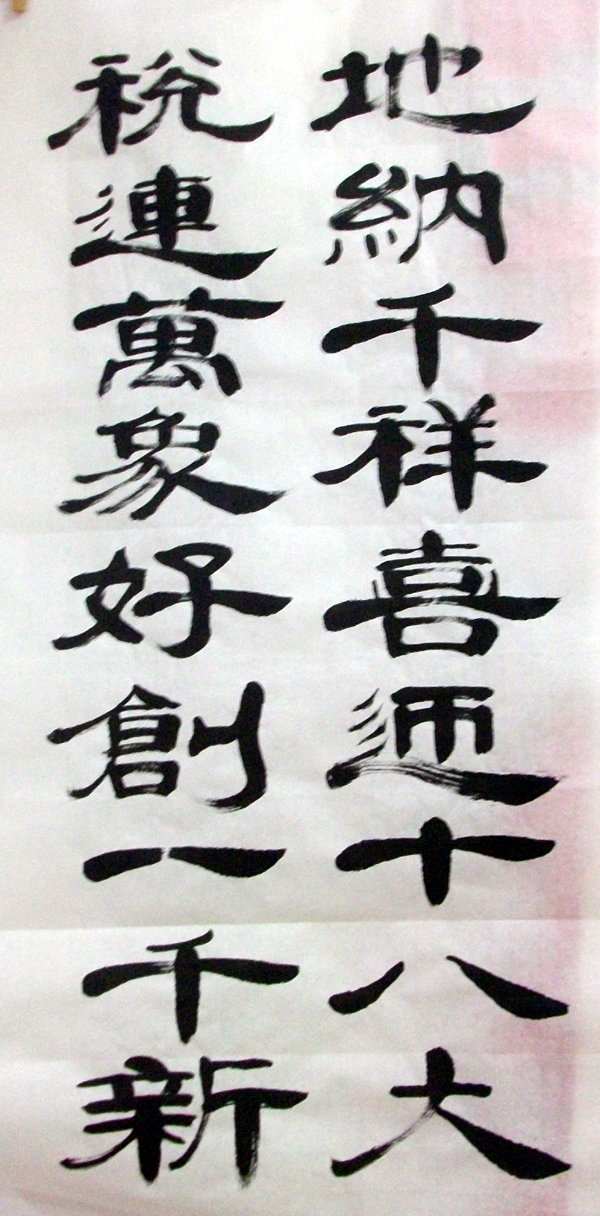 地納千祥喜迊十八大
税連萬象好創一千新